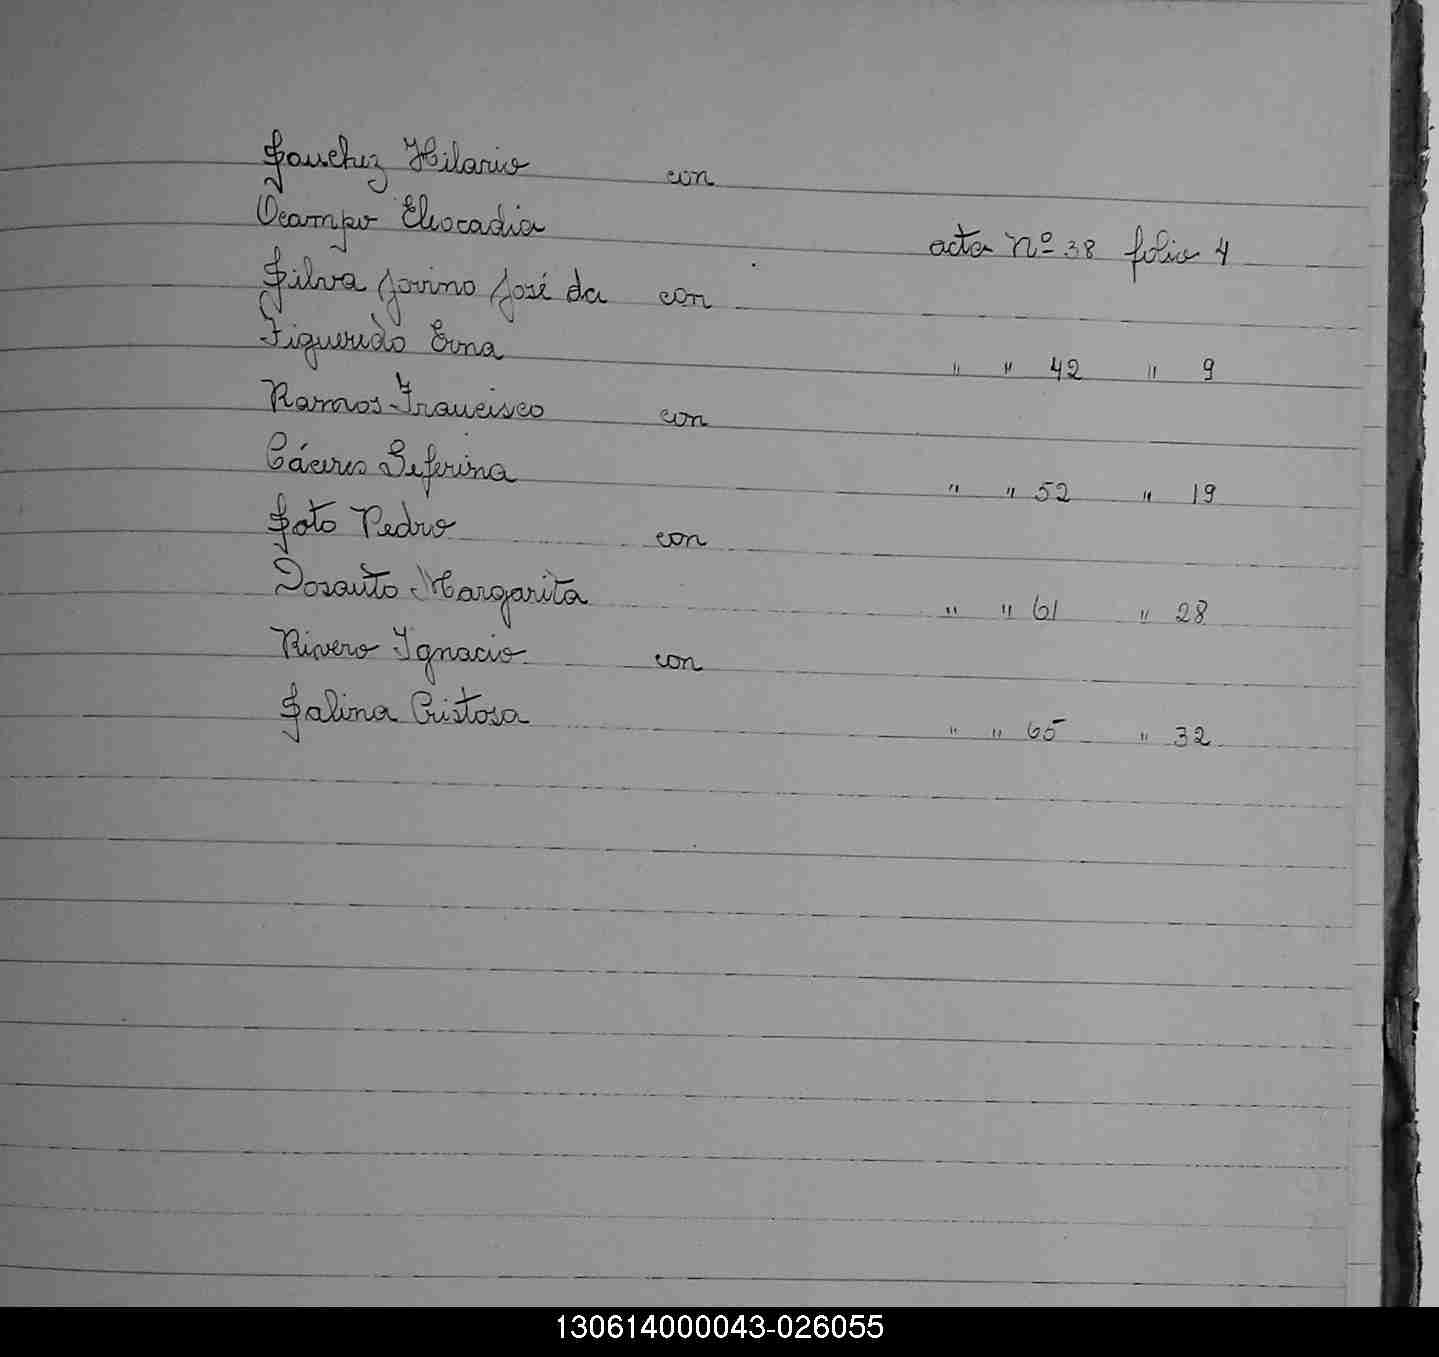 Sanchez Hilario con
Ocampo Eleocadia acta Nº 38 folio 4
Silva Jovino José da con
Figueredo Erna " " 42 " 9
Ramos Francisco con
Cáceres Seferina " " 52 " 19
Soto Pedro con
Dosanto Margarita " " 61 " 28
Rivero Ignacio con
Salina Cristosa " " 65 " 32
130614000043-026055